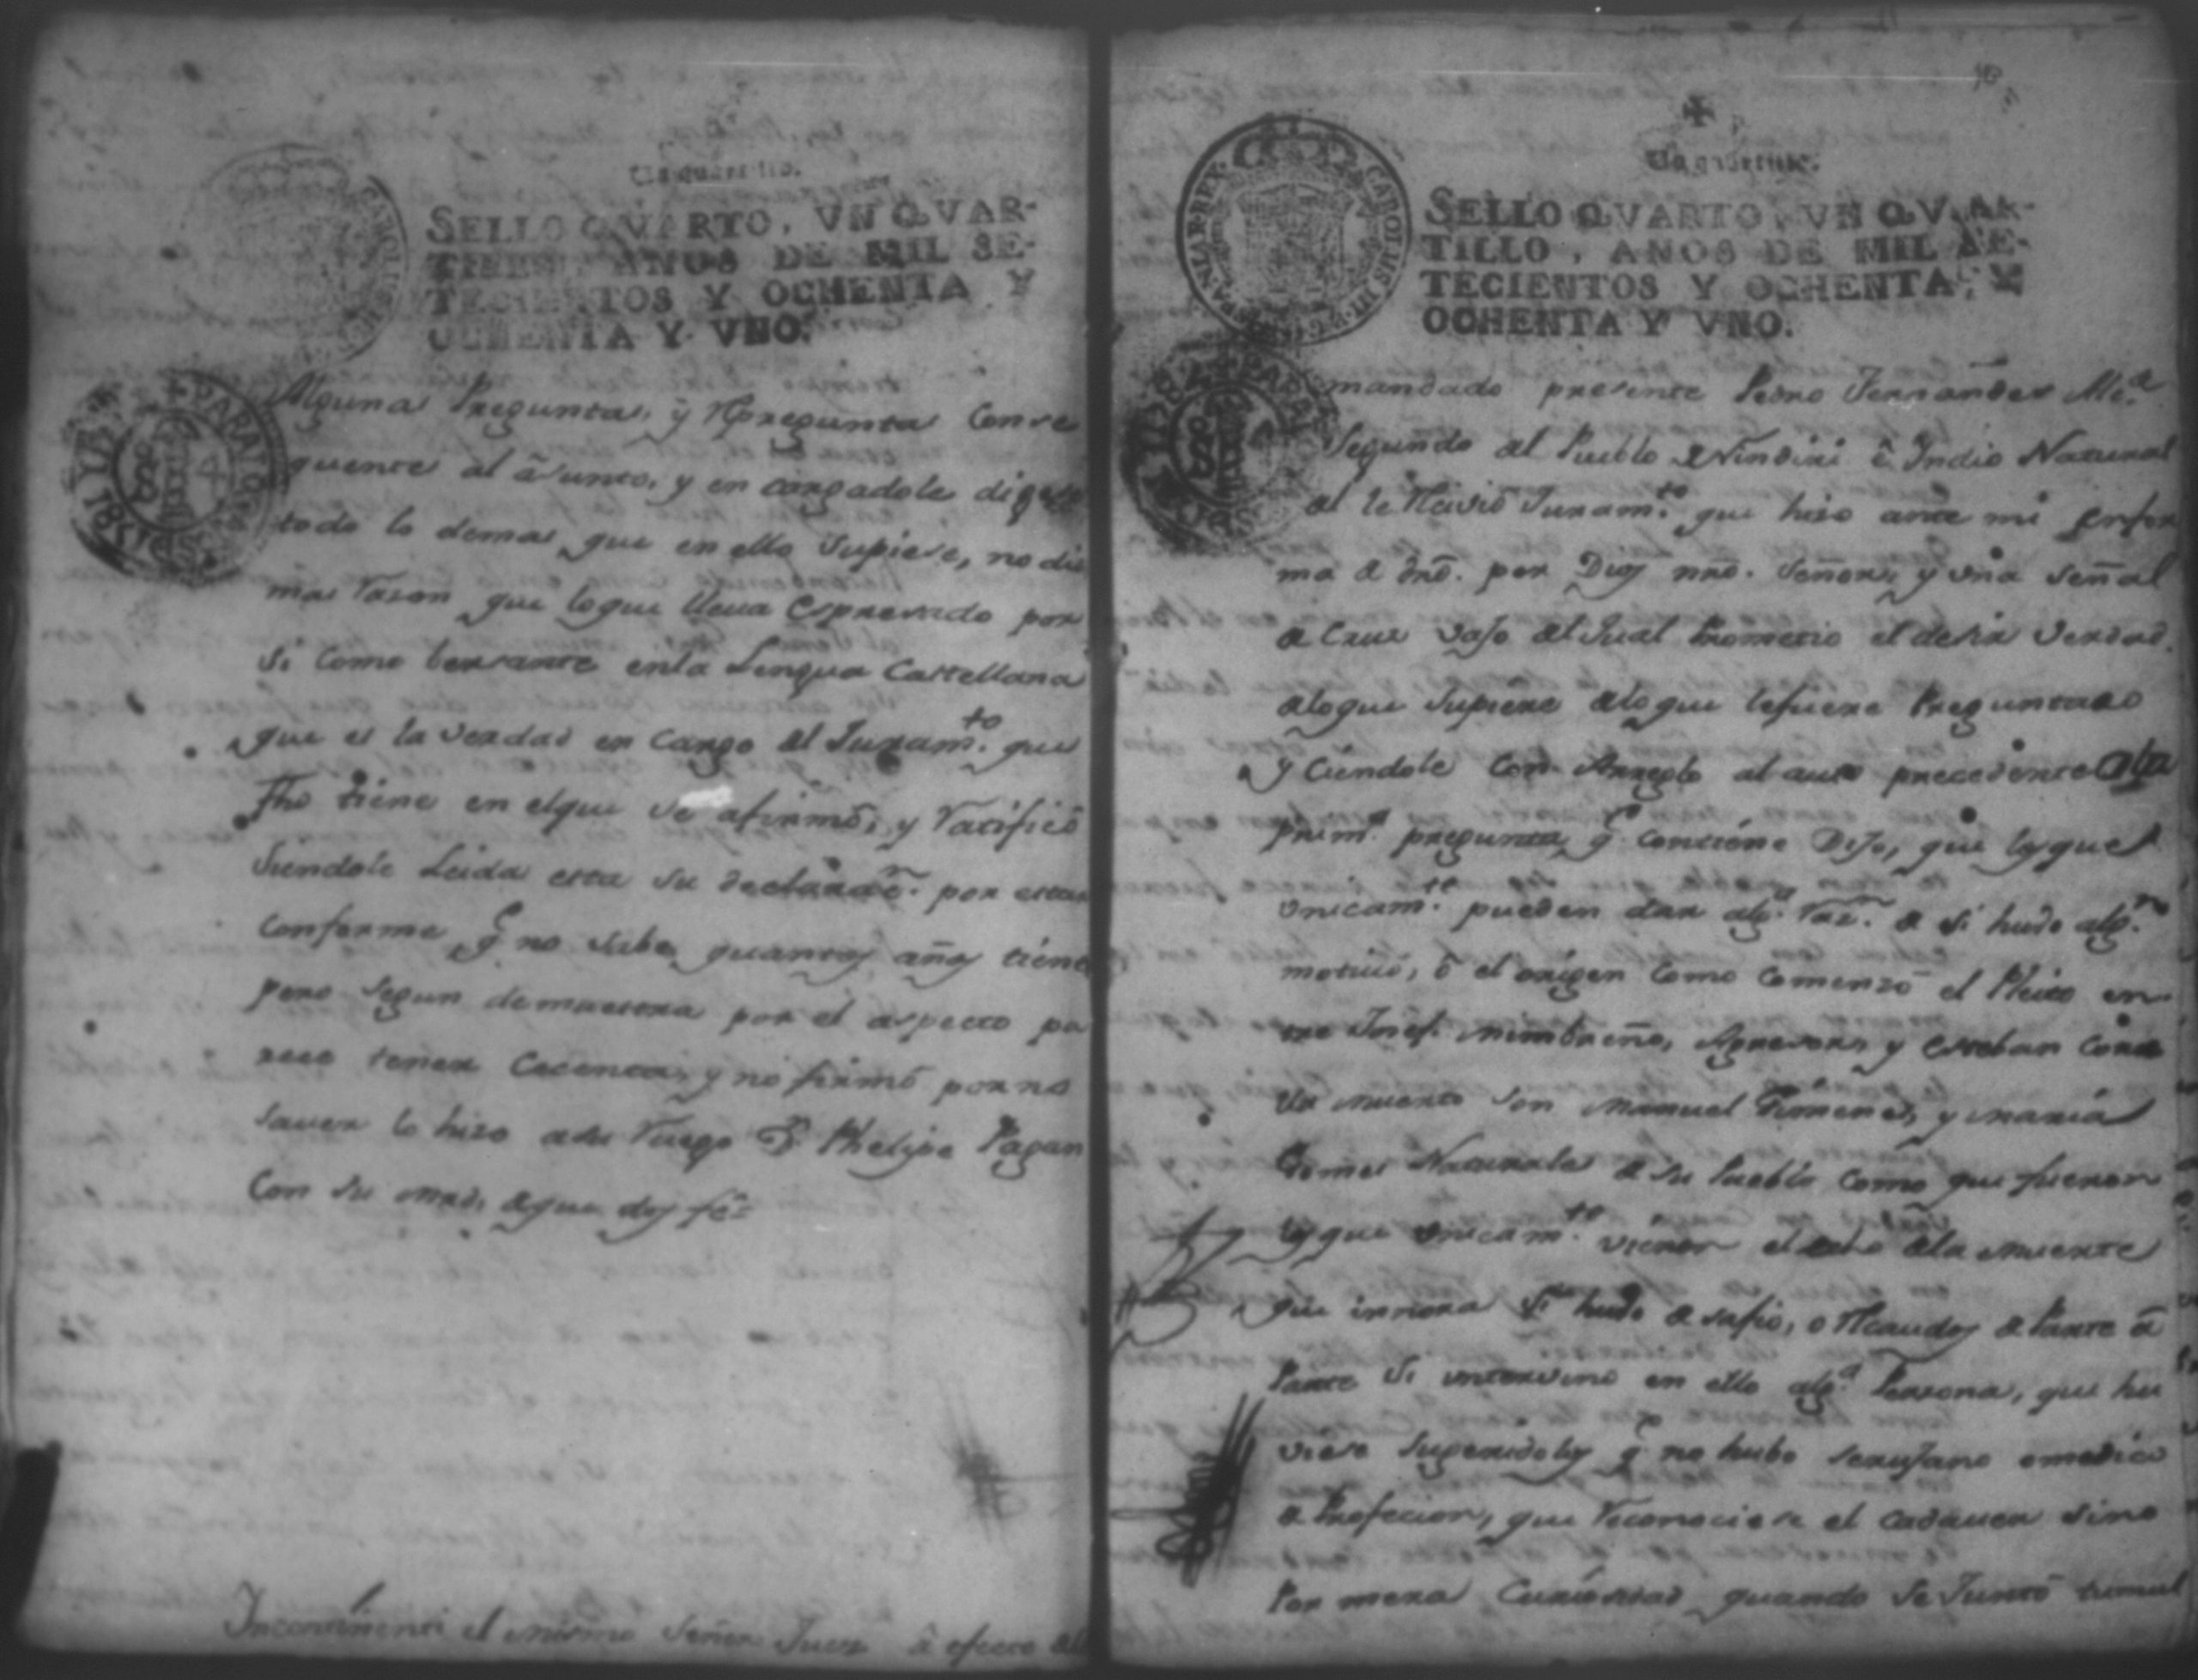 Un quartillo.
SELLO QVARTO, VN QVAR-
TILLO, AÑOS DE MIL SE-
TECIENTOS Y OCHENTA Y
OCHENTA Y VNO.
Algunas Preguntas, y Repreguntas Conse
quentes al asunto, y en cargadole digese
todo lo demas que en ello Supiese, no dio
mas razon que loque lleva Espresado por
si como bersante enla Lengua Castellana
que es la verdad en cargo del Juram.to que
fho tiene en elque se afirmó, y ratificó
Siendole Leida esta su declarac.n por estar
conforme q.e no sabe quantos años tiene
pero segun demuestra por el aspecto pa
rece tener Cecenta, y no firmó por no
saver lo hizo asu ruego D.n Phelipe Pagan
Con su mrd. deque doy fé=
Incontinenti el mismo Señor Juez á efecto de
Un quartillo.
SELLO QVARTO, VN QVAR-
TILLO, AÑOS DE MIL SE-
TECIENTOS Y OCHENTA, Y
OCHENTA Y VNO.
CAROLUS III D G HISPANIAR REX
mandado presente Pedro Fernandes Alc.e
Segundo del Pueblo de Nindiri é Indio Natural
del le Recivió Juram.to que hizo ante mi en for
ma de dro. por Dios nro. Señor, y una señal
de Cruz vajo del qual Prometio el desir verdad
deloque supiere deloque lefuere Preguntado
y Ciendole con Arreglo al auto precedente ala
prim.a pregunta q.e contiene Dijo, que losque
unicam.te pueden dar alg.a raz.n de si huvo alg.n
motivo, ó el origen como comenzó el Pleito en
tre Josef. Mimbreño, Agresor, y Esteban
muerto son Manuel Gimenes, y Maria
Gomes Naturales de su Pueblo como que fueron
losque unicam.te vieron el echo dela muerte
que innora si huvo desafio, o Recaudos de Parte á
Parte si intervino en ello alg.a Persona, que hu
viese sugeridoles q.e no hubo serujano omedico
de Profecion, que reconociese el cadaver sino
Por mera Curiosidad quando se Juntó tumul